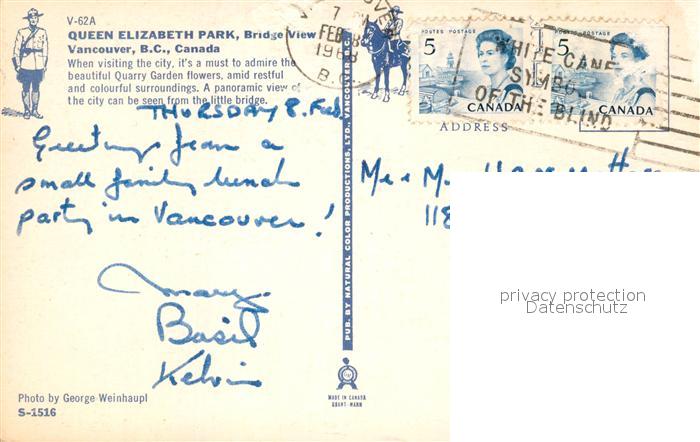 V-62A
QUEEN ELIZABETH PARK, Bridge View
Vancouver, B.C., Canada
When visiting the city, it's a must to admire the
beautiful Quarry Garden flowers, amid restful
and colourful surroundings. A panoramic view of
the city can be seen from the little bridge.
THURSDAY 8. Feb.
Greetings from a
small family lunch
party in Vancouver!
Mary
Basil
Kelvin
Photo by George Weinhaupl
S-1516
PUB. BY NATURAL COLOR PRODUCTIONS, LTD., VANCOUVER, B.C.
MADE IN CANADA
GRANT-MANN
7 PM
FEB 8
1968
B.C.
POSTES POSTAGE
5
CANADA
POSTES POSTAGE
5
CANADA
WHITE CANE
SYMBOL
OF THE BLIND
ADDRESS
118
privacy protection
Datenschutz